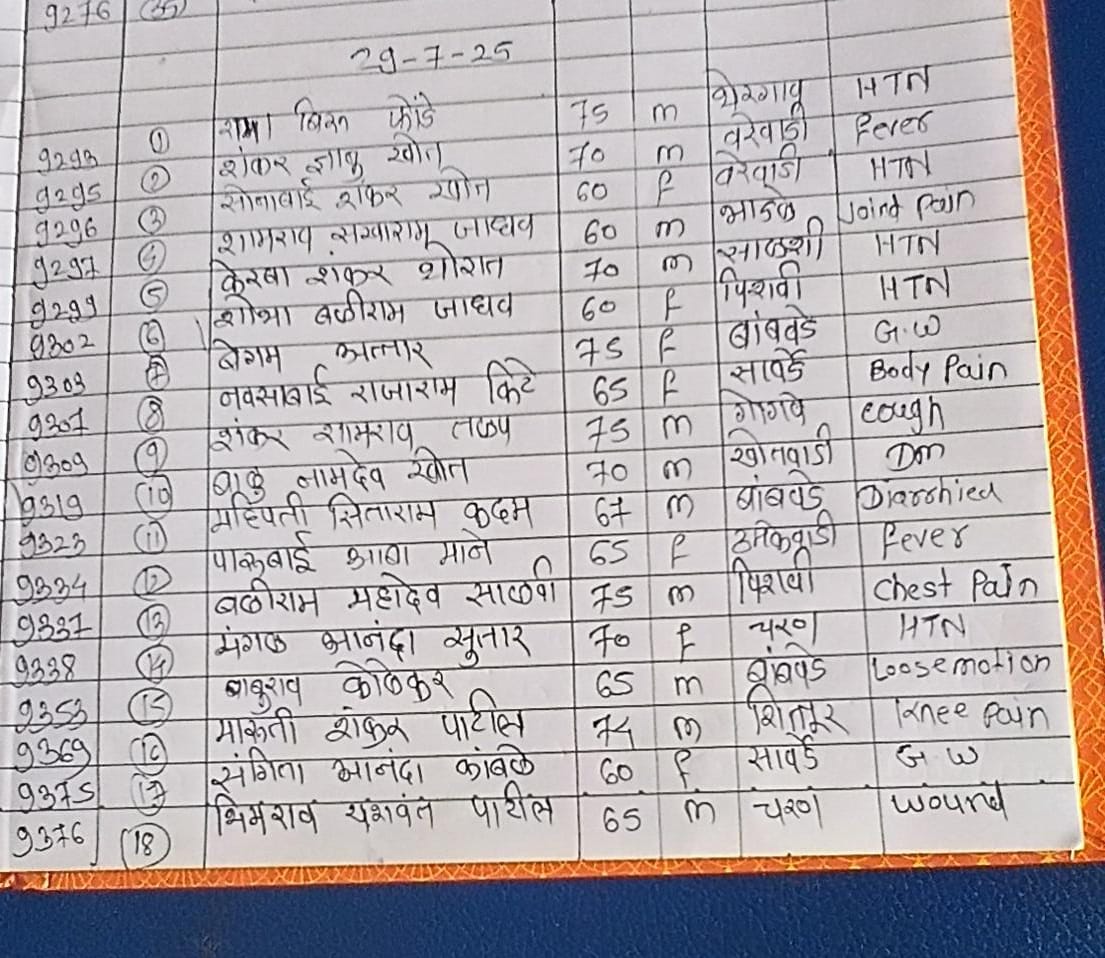 9276 (35)
29-7-25
9293 ① रामा बिरु फोंडे 75 m शेरगाव HTN
9295 ② शंकर ज्ञानु खोत 70 m वरेवाडी Fever
9296 ③ सोनाबाई शंकर खोत 60 F वरेवाडी HTN
9297 ④ शामराव सखाराम जाधव 60 m भाडळे Joint Pain
9299 ⑤ केरबा शंकर थोरात 70 m साळशी HTN
9302 ⑥ शोभा बळीराम जाधव 60 F पिशवी HTN
9303 ⑦ बेगम अत्तार 75 F बांबवडे G.W
9307 ⑧ नकसाबाई राजाराम किटे 65 F सावर्डे Body Pain
9309 ⑨ शंकर शामराव तळप 75 m गोगवे cough
9319 ⑩ बाळु नामदेव खोत 70 m खोतवाडी Dm
9323 ⑪ महिपती सिताराम कदम 67 m बांबवडे Diarrhied
9334 ⑫ पारूबाई आबा माने 65 F ठमकेवाडी Fever
9337 ⑬ बळीराम महादेव साळवी 75 m पिशवी Chest PaIn
9338 ⑭ मंगल आनंदा सुतार 70 F चरण HTN
9353 ⑮ बाबुराव कोळेकर 65 m बांबवडे Loosemotion
9369 ⑯ मारूती शंकर पाटील 74 m शित्तूर Knee Pain
9375 ⑰ संगिता आनंदा कांबळे 60 F सावर्डे G.W
9376 ⑱ भिमराव यशवंत पाटील 65 m चरण Wound